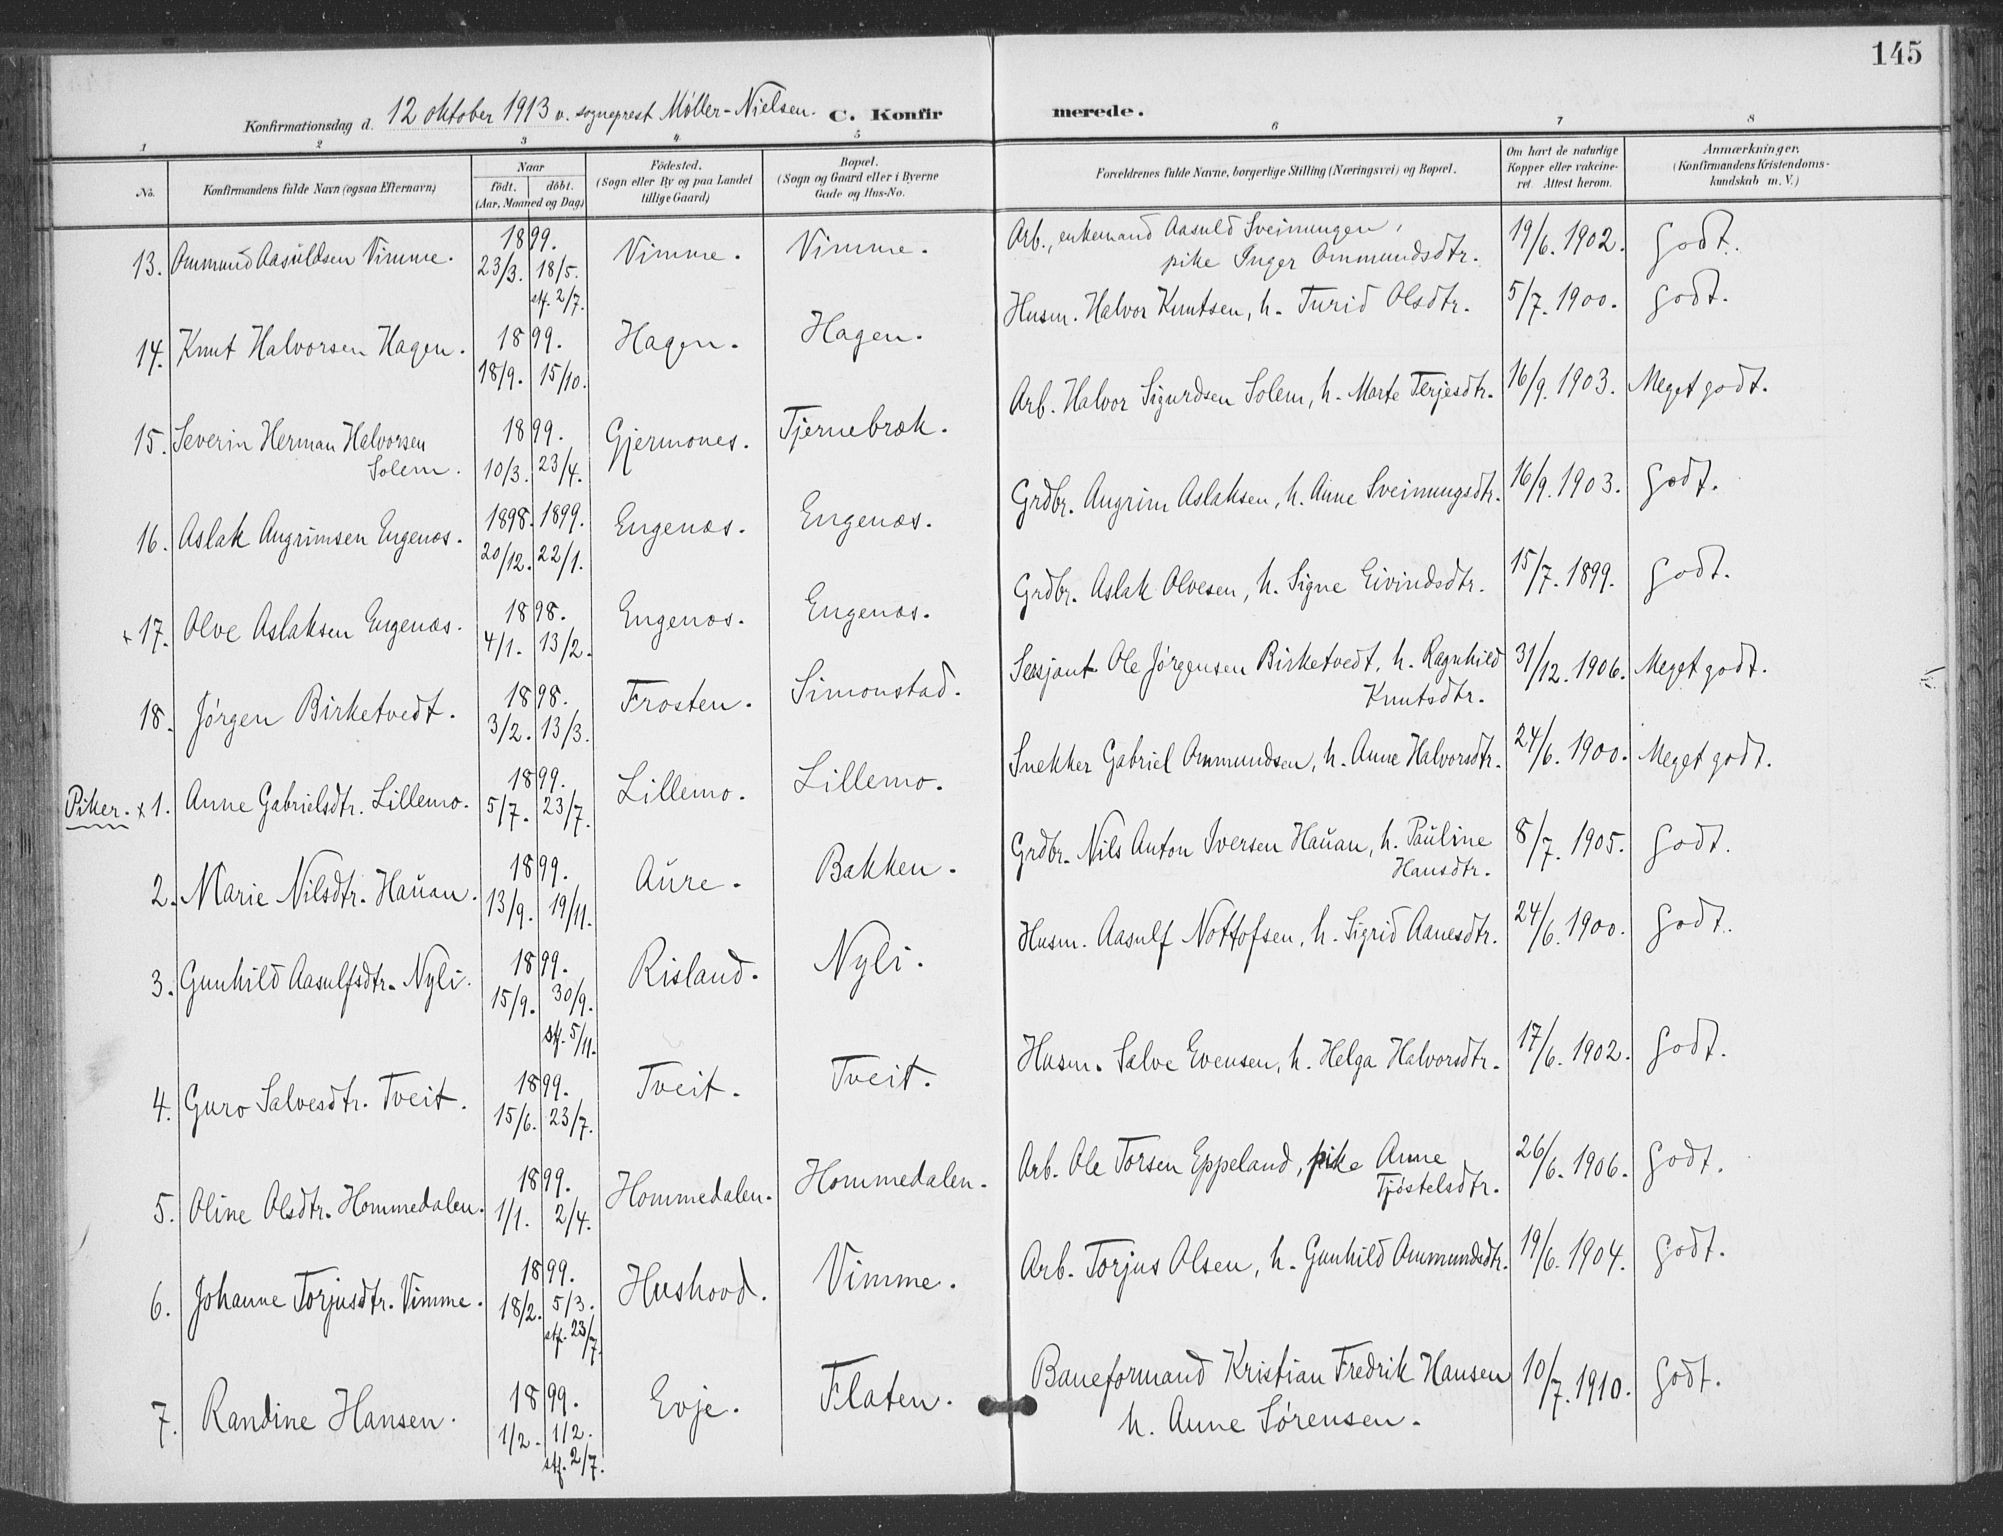 145
Konfirmationsdag d. 12 oktober 1913 v. sogneprest Møller-Nielsen. C. Konfirmerede.
1 2 3 4 5 6 7 8
No. Konfirmandens fulde Navn (ogsaa Efternavn) Naar født. døbt. (Aar, Maaned og Dag) Födested. (Sogn eller By og paa Landet tillige Gaard) Bopæl. (Sogn og Gaard eller i Byerne Gade og Hus-No. Forældrenes fulde Navne, borgerlige Stilling (Næringsvei) og Bopæl. Om havt de naturlige Kopper eller vakcineret. Attest herom. Anmærkninger. (Konfirmandens Kristendomskundskab m. V.)
13. Ommund Aasuldsen Vimme. 1899. 23/3. 18/5. stf. 2/7. Vimme. Vimme. Arb., enkemand Aasuld Sveinungsen, pike Inger Ommundsdtr. 19/6. 1902. Godt.
14. Knut Halvorsen Hagen. 1899. 18/9. 15/10. Hagen. Hagen. Husm. Halvor Knutsen, h. Turid Olsdtr. 5/7. 1900. Godt.
15. Severin Herman Halvorsen Solem. 1899. 10/3. 23/4. Gjermones. Tjernebræk. Arb. Halvor Sigurdsen Solem, h. Marte Terjesdtr. 16/9. 1903. Meget godt.
16. Aslak Angrimsen Engenæs. 1898. 1899. 20/12. 22/1. Engenæs. Engenæs. Grdbr. Angrim Aslaksen, h. Anne Sveinungsdtr. 16/9. 1903. Godt.
x 17. Olve Aslaksen Engenæs. 1898. 4/1. 13/2. Engenæs. Engenæs. Grdbr. Aslak Olvesen, h. Signe Eivindsdtr. 15/7. 1899. Godt.
18. Jørgen Birketvedt. 1898. 3/2. 13/3. Frosten. Simonstad. Sersjant Ole Jørgensen Birketvedt, h. Ragnhild Knutsdtr. 31/12. 1906. Meget godt.
Piker. x 1. Anne Gabrielsdtr. Lillemo. 1899. 5/7. 23/7. Lillemo. Lillemo. Snekker Gabriel Ommundsen, h. Anne Halvorsdtr. 24/6. 1900. Meget godt.
2. Marie Nilsdtr. Hauan. 1899. 13/9. 19/11. Aure. Bakken. Grdbr. Nils Anton Iversen Hauan, h. Pauline Hansdtr. 8/7. 1905. Godt.
3. Gunhild Aasulfsdtr. Nyli. 1899. 15/9. 30/9. stf. 5/11. Risland. Nyli. Husm. Aasulf Nottofsen, h. Sigrid Aanesdtr. 24/6. 1900. Godt.
4. Guro Salvesdtr. Tveit. 1899. 15/6. 23/7. Tveit. Tveit. Husm. Salve Evensen, h. Helga Halvorsdtr. 17/6. 1902. Godt.
5. Oline Olsdtr. Hommedalen. 1899. 1/1. 2/4. Hommedalen. Hommedalen. Arb. Ole Torsen Eppeland, pike Anne Tjøstelsdtr. 26/6. 1906. Godt.
6. Johanne Torjusdtr. Vimme. 1899. 18/2. 5/3. stf. 23/7. Hushovd. Vimme. Arb. Torjus Olsen, h. Gunhild Ommundsdtr. 19/6. 1904. Godt.
7. Randine Hansen. 1899. 1/2. 1/2. stf. 2/7. Evje. Flaten. Baneformand Kristian Fredrik Hansen h. Anne Sørensen. 10/7. 1910. Godt.